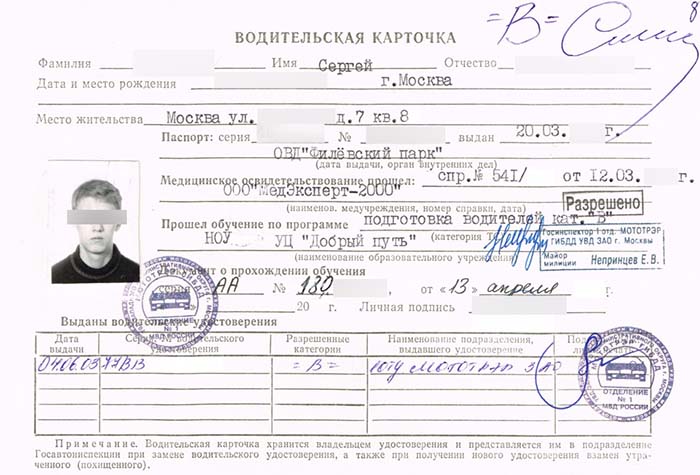 8
=В=
ВОДИТЕЛЬСКАЯ КАРТОЧКА
Фамилия Имя Сергей Отчество
Дата и место рождения г.Москва
Место жительства Москва ул. д.7 кв.8
Паспорт: серия № выдан 20.03. г.
ОВД"Филёвский парк"
(дата выдачи, орган внутренних дел)
Медицинское освидетельствование прошел: спр.№ 541/ от 12.03. г.
ООО"МедЭксперт-2000"
(наименов. медучреждения, номер справки, дата)
Разрешено
Прошел обучение по программе подготовка водителей кат."В"
(категория ТС)
НОУ УЦ "Добрый путь"
(наименование образовательного учреждения)
Госинспектор 1 отд. МОТОТРЭР
ГИБДД УВД ЗАО г. Москвы
Майор
милиции Непринцев Е.В.
Документ о прохождении обучения
серия АА № 180 от "13" апреля г.
20 г. Личная подпись
Выданы водительские удостоверения
Дата выдачи Серия, № водительского удостоверения Разрешенные категории Наименование подразделения, выдавшего удостоверение
04.06.03 77ВВ =В= МОТОТРЭР ЗАО
МОТОТРЭР
ОТДЕЛЕНИЕ
№ 1
МВД РОССИИ
Примечание. Водительская карточка хранится владельцем удостоверения и представляется им в подразделение
Госавтоинспекции при замене водительского удостоверения, а также при получении нового удостоверения взамен ут-
раченного (похищенного).